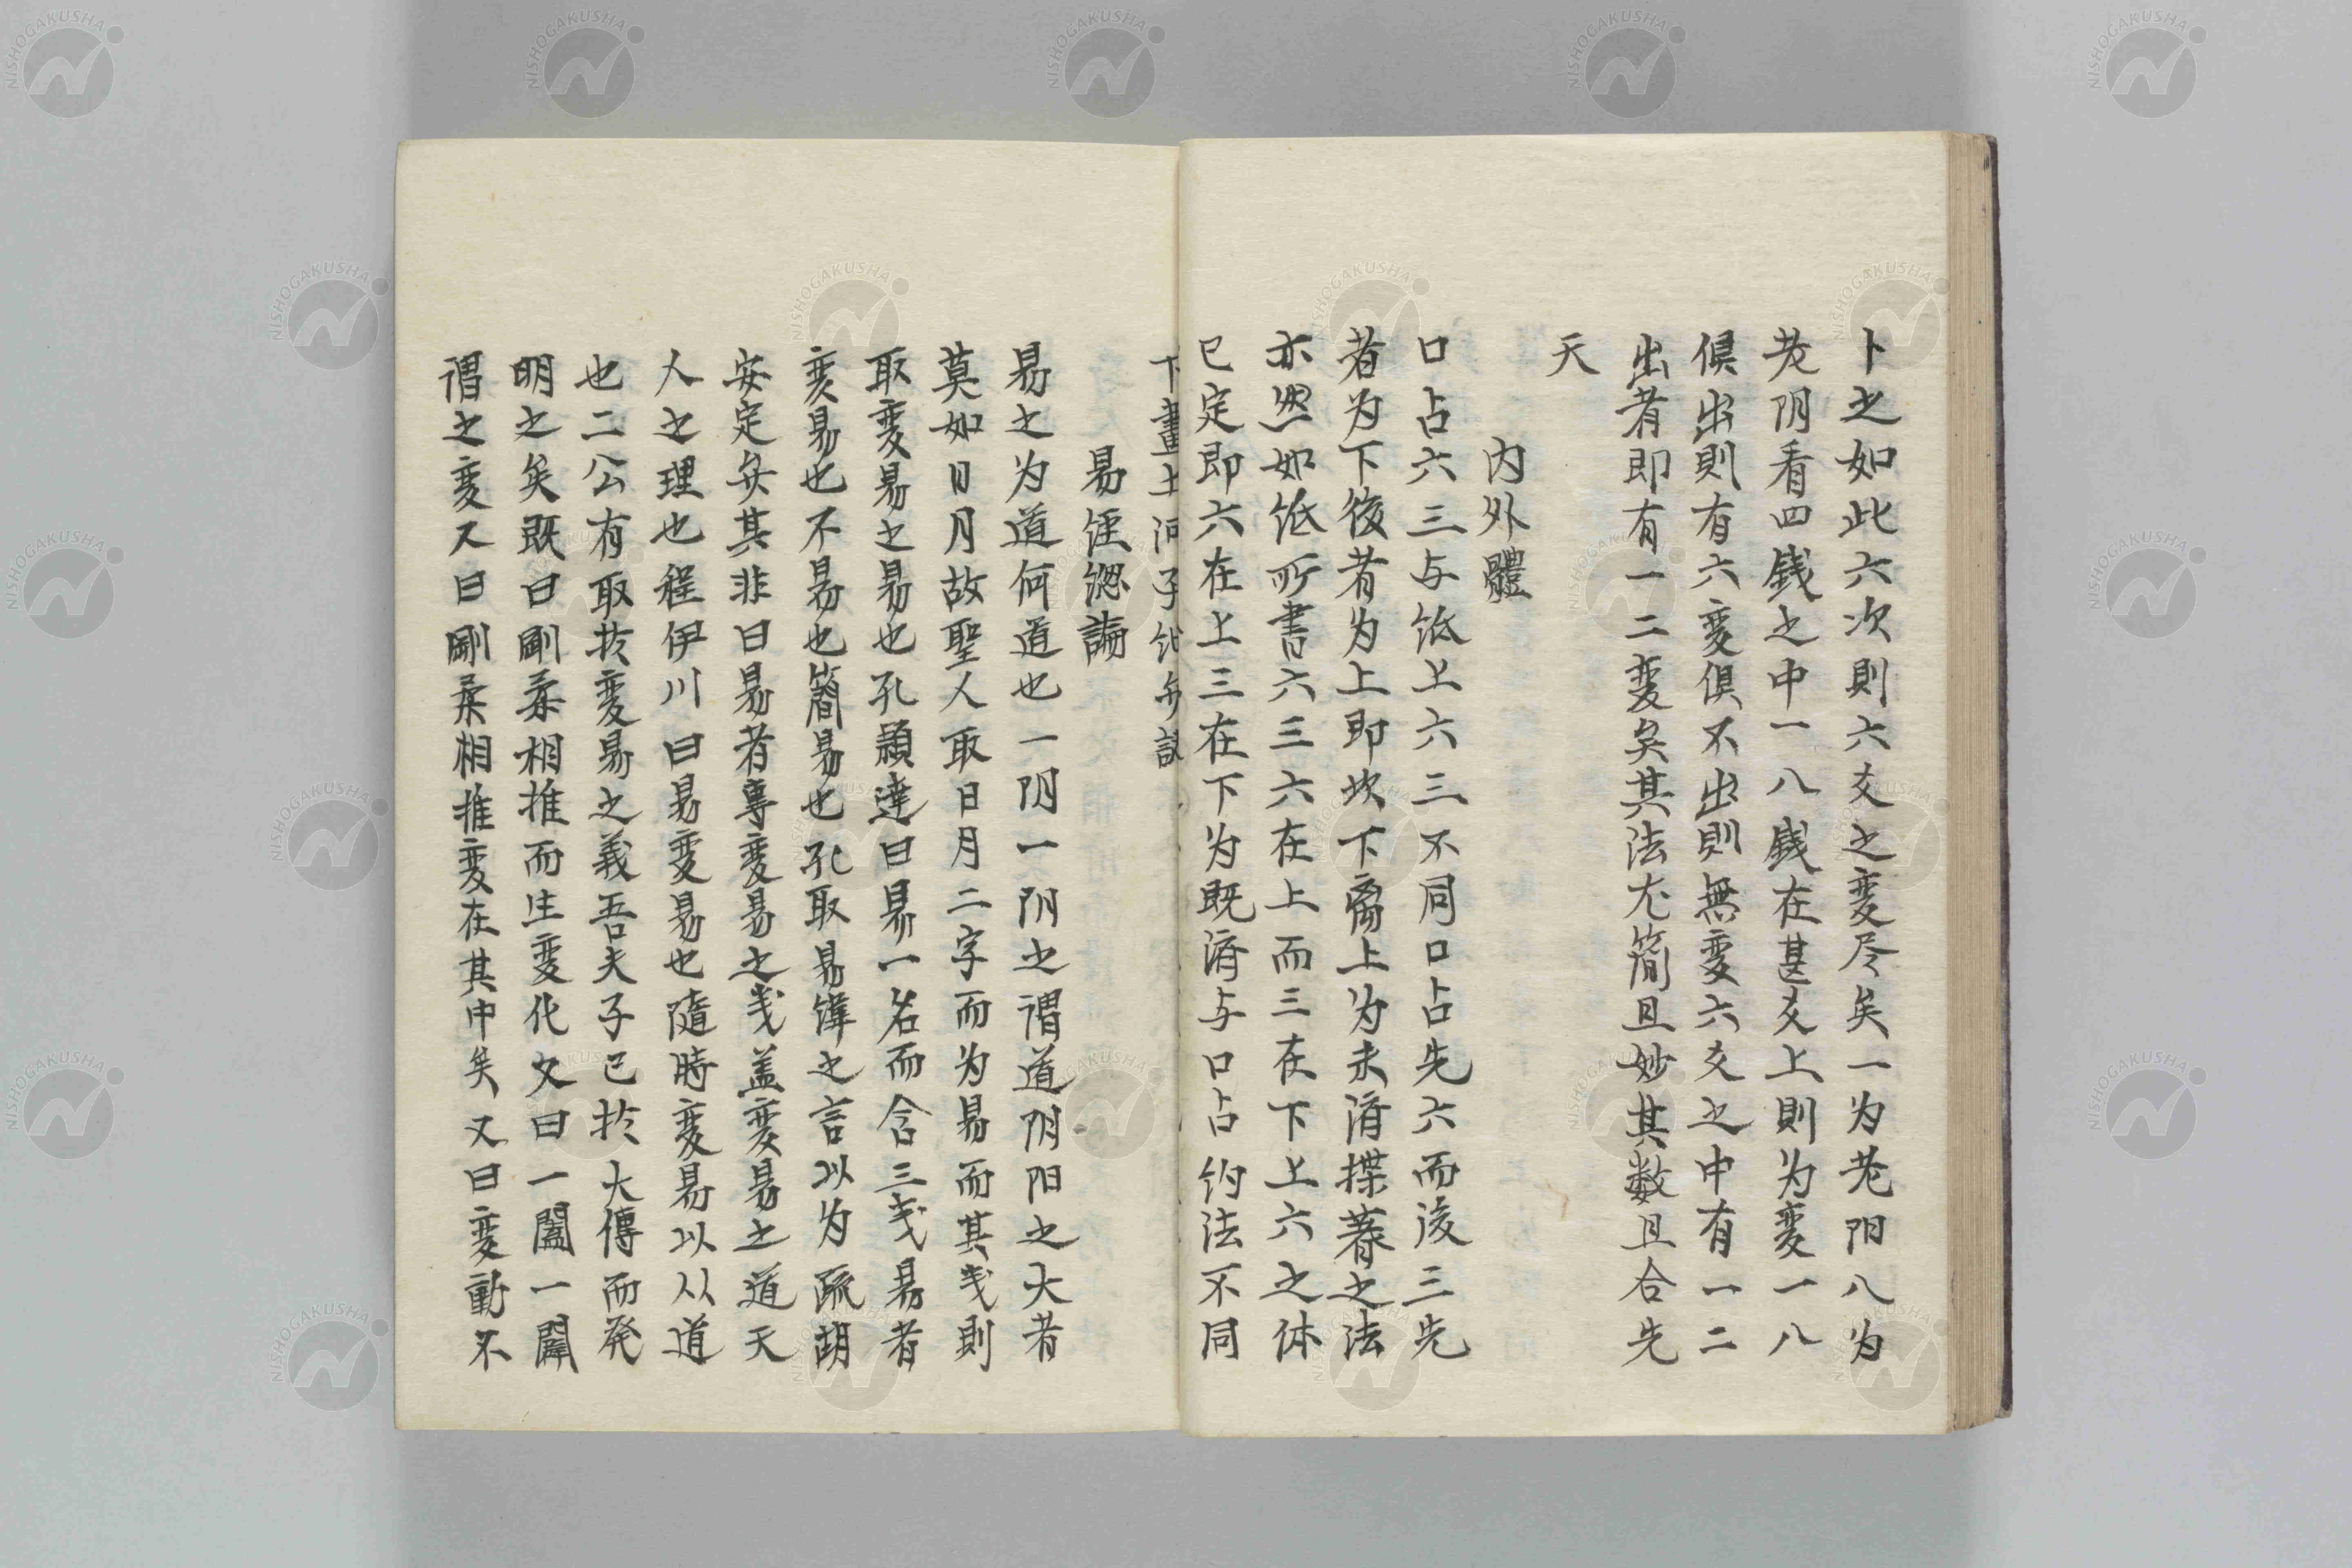 卜之如此六次則六爻之変尽矣一为老阳八为
老阴看四銭之中一八銭在甚爻上則为変一八
俱出則有六変俱不出則無変六爻之中有一二
出者即有一二変矣其法尤简且妙其数且合先
天
内外體
口占六三与纸上六三不同口占先六而後三先
者为下後者为上即坎下离上为未济揲蓍之法
亦然如纸所書六三六在上而三在下上六之体
已定即六在上三在下为既济与口占约法不同
易経總論
易之为道何道也一阴一阳之謂道阴阳之大者
莫如日月故聖人取日月二字而为易而其义則
取変易之易也孔頴達曰易一名而含三义易者
変易也不易也簡易也孔取易緯之言以为疏胡
安定矣其非曰易者專変易之义盖変易之道天
人之理也程伊川曰易変易也隨時変易以从道
也二公有取扵変易之義吾夫子已扵大傳而発
明之矣既曰剛柔相推而生変化又曰一闔一闢
謂之変又曰剛柔相推変在其中矣又曰変動不